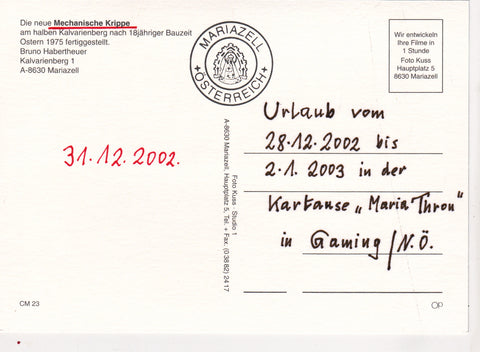 Die neue Mechanische Krippe
am halben Kalvarienberg nach 18jähriger Bauzeit
Ostern 1975 fertiggestellt.
Bruno Habertheuer
Kalvarienberg 1
A-8630 Mariazell
MARIAZELL
+ÖSTERREICH+
Wir entwickeln
Ihre Filme in
1 Stunde
Foto Kuss
Hauptplatz 5
8630 Mariazell
31.12.2002.
Foto Kuss · Studio 1
A-8630 Mariazell, Hauptplatz 5, Tel. + Fax. (0 38 82) 24 17
Urlaub vom
28.12.2002 bis
2.1.2003 in der
Kartause „Maria Thron"
in Gaming / N.Ö.
CM 23
OP